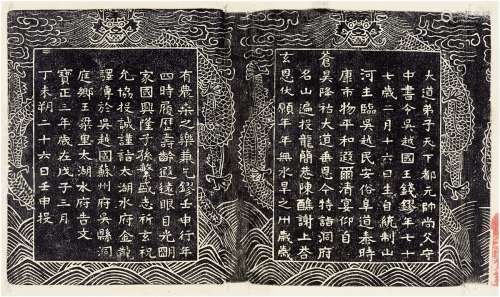 大道弟子天下都元帥尚父守
中書令吳越國王錢鏐年七十
七歲二月十六日生自統制山
河主臨吳越民安俗阜道泰時
康市物平和遐邇清宴仰自
蒼昊降祐大道垂恩今特詣洞府
名山遍投龍簡恭陳醮謝上答
玄恩伏願年年無水旱之州歲歲
有農桑之樂兼乞鏐壬申行年
四時履歷壽齡遐遠眼目光明
家國興隆子孫繁盛志祈玄祝
允協投誠謹詣太湖水府金龍
驛傳於吳越國蘇州府吳縣洞
庭鄉王梁里太湖水府告文
寶正三年歲在戊子三月
丁未朔二十六日壬申投